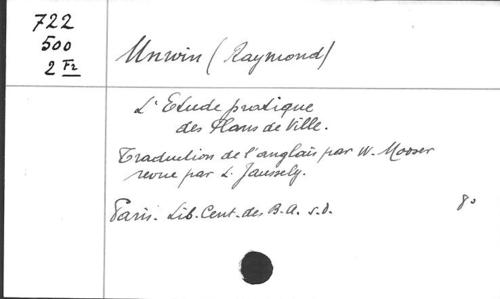 722
500
2 Fr
Unwin (Raymond)
L'Etude pratique
des Plans de Ville.
Traduction de l'anglais par W. Mooser
revue par L. Jaussely.
Paris. Lib. Cent. des B.-A. s.d. 8o